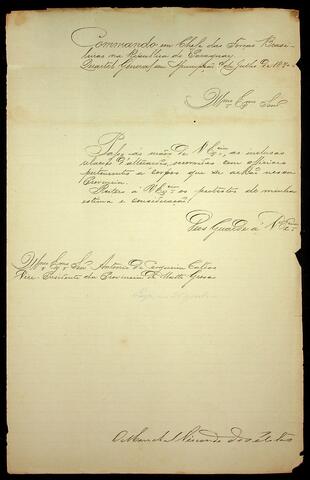 Commando em Chefe das Forças Brasi-
leiras na Republica do Paraguay
Quartel General em Assumpção de Julho de 187
Illmo. Exmo. Senr.
Passo ás mãos de V. Exª. as inclusas
relações d'alterações, occorridas com officiaes
pertencentes a corpos que se achão nessa
Provincia.
Reitero a V. Exª. os protestos de minha
estima e consideração.
Deos Guarde a V. Exª.
Illmo. Exmo. Senr. Antonio de Cerqueira Caldas
Vice-Presidente da Provincia de Matto Grosso
O Marechal Visconde de Pelotas